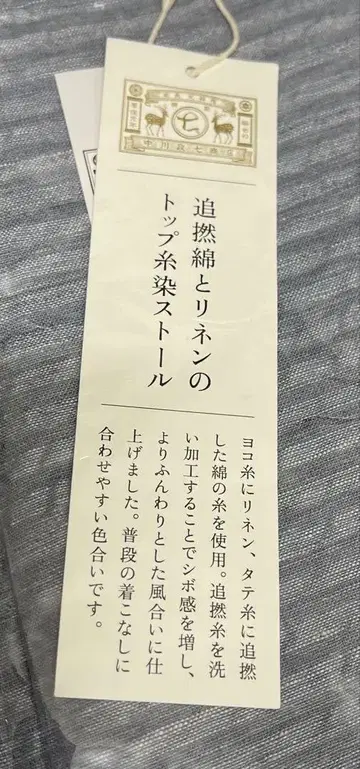 中川政七商店
七
追撚綿とリネンの
トップ糸染ストール
ヨコ糸にリネン、タテ糸に追撚
した綿の糸を使用。追撚糸を洗
い加工することでシボ感を増し、
よりふんわりとした風合いに仕
上げました。普段の着こなしに
合わせやすい色合いです。